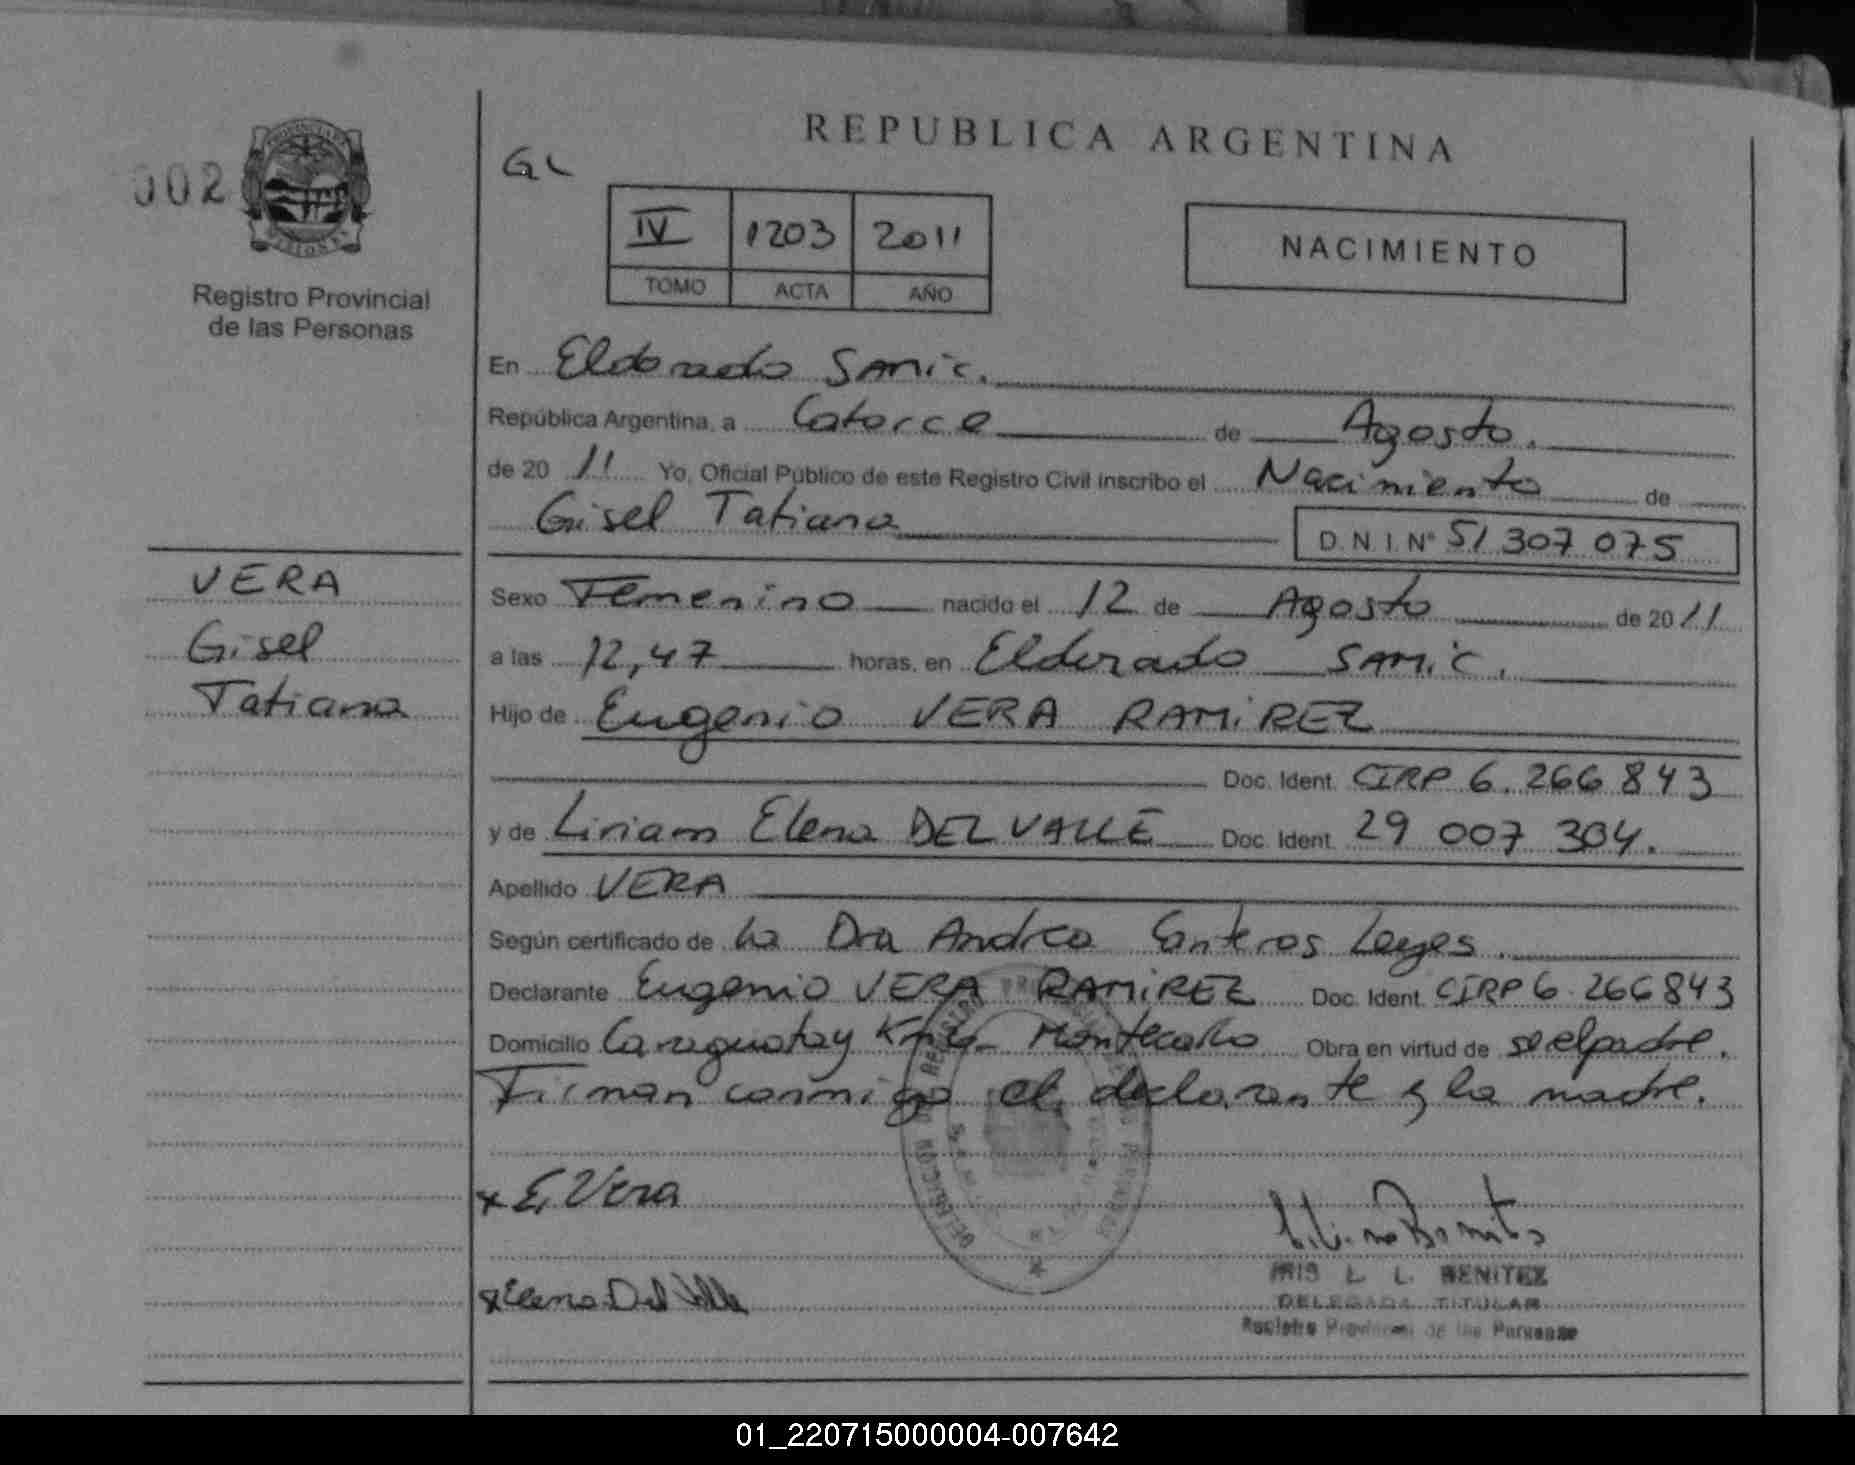 REPUBLICA ARGENTINA
002
GL
Registro Provincial
de las Personas
IV 1203 2011
TOMO ACTA AÑO
NACIMIENTO
En Eldorado SAMic.
República Argentina, a Catorce de Agosto.
de 20 11 Yo, Oficial Público de este Registro Civil inscribo el Nacimiento de
Gisel Tatiana D.N.I. Nº 51 307 075
VERA
Gisel
Tatiana
Sexo Femenino nacido el 12 de Agosto de 20 11
a las 12,47 horas, en Eldorado SAMiC.
Hijo de Eugenio VERA RAMiREZ
Doc. Ident. CIRP 6.266 843
y de Liriam Elena DEL VALLE Doc. Ident. 29 007 304.
Apellido VERA
Según certificado de la Dra Andrea Canteros Leyes.
Declarante Eugenio VERA RAMiREZ Doc. Ident. CIRP 6.266843
Domicilio Caraguatay Montecarlo Obra en virtud de se el padre.
Firman conmigo el declarante y la madre.
x E. Vera
IRIS L. L. BENITEZ
x Elena Del Valle
DELEGADA TITULAR
Registro Provincial de las Personas
01_220715000004-007642